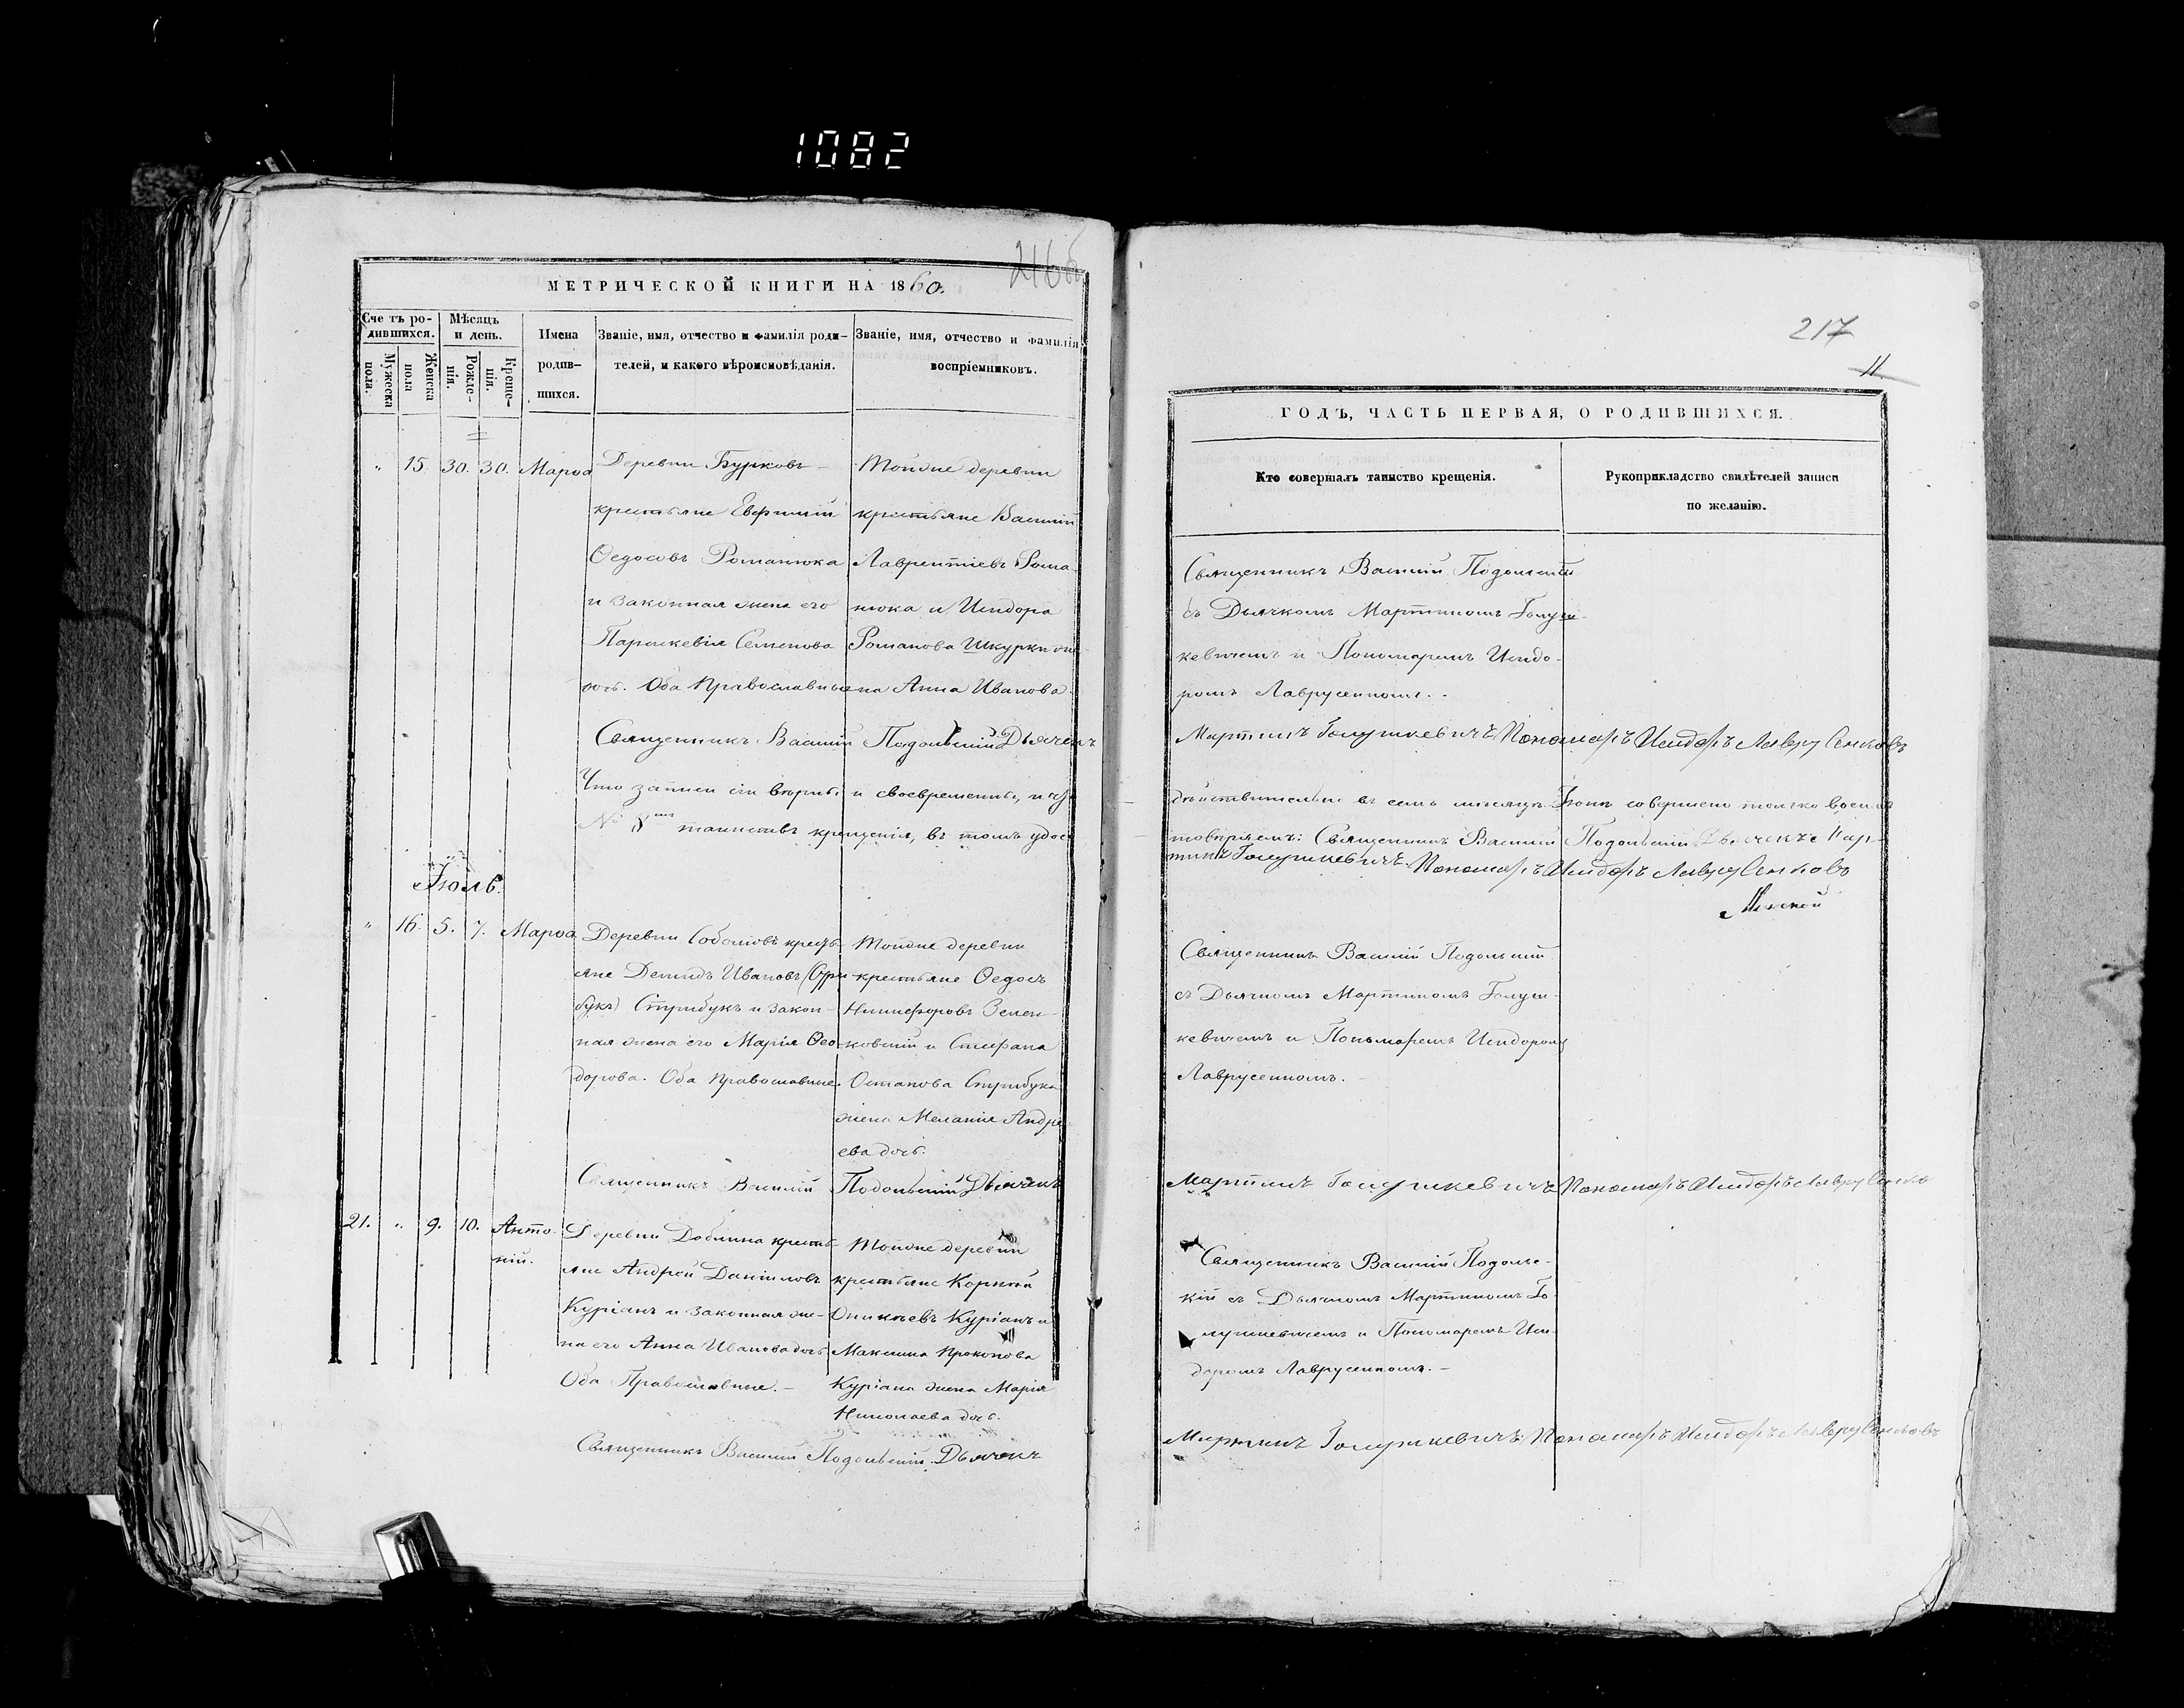 1082
216б
МЕТРИЧЕСКОЙ КНИГИ НА 1860.
Счетъ родившихся.
Мужеска пола.
Женска пола
Мѣсяцъ и день.
Рожденія.
Крещенія.
Имена родившихся.
Званіе, имя, отчество и фамилія родителей, и какого вѣроисновѣданія.
Званіе, имя, отчество и фамилія воспріемниковъ.
" 15. 30. 30. Марѳа
Деревни Бурковъ
крестьяне Евфимій
Ѳедосовъ Романюка
и законная жена его
Параскевія Семенова
дочь. Оба Православные
Тойже деревни
крестьяне Василій
Лаврентіевъ Рома-
нюка и Исидора
Романова Шкурки же-
на Анна Иванова.
Священникъ Василій Подольскій Дьячекъ
Что записи сіи вѣрны и своевременны, и
№ 8 таинствъ крещенія, въ томъ удос-
Іюль.
" 16. 5. 7. Марѳа
Деревни Соболіовъ кресть-
яне Демидъ Ивановъ (Стри
букъ) Стрибукъ и закон-
ная жена его Марія Ѳео-
дорова. Оба православные.
Тойже деревни
крестьяне Ѳедосъ
Никифоровъ Зелен-
ковскій и Стефана
Остапова Стрибука
жена Меланія Андре-
ева дочь.
Священникъ Василій Подольскій Дьячекъ
21. " 9. 10. Анто-
ній.
Деревни Доблина кресть-
яне Андрей Даніиловъ
Куріанъ и законная же-
на его Анна Иванова дочь
Оба Православные. –
Тойже деревни
крестьяне Корнѣй
Оникѣевъ Куріанъ и
Максима Прокопова
Куріана жена Марія
Николаева дочь.
Священникъ Василій Подольскій. Дьячекъ
217
11
ГОДЪ, ЧАСТЬ ПЕРВАЯ, О РОДИВШИХСЯ.
Кто совершалъ таинство крещенія.
Рукоприкладство свидѣтелей записи
по желанію.
Священникъ Василій Подольскій
съ Дьячкомъ Мартиномъ Голуш-
кевичемъ и Пономаремъ Исидо-
ромъ Лаврусенкомъ. -
Мартинъ Голушкевичъ Пономаръ Исидоръ ЛавруСенковъ
дѣйствительно въ семъ мѣсяцѣ Іюнѣ совершено только восемь
товѣряемъ: Священникъ Василій Подольскій Дьячекъ Мар-
тинъ Голушкевичъ. Пономаръ Исидоръ ЛавруСенковъ
Священникъ Василій Подольскій
съ Дьячкомъ Мартиномъ Голуш-
кевичемъ и Пономаремъ Исидоромъ
Лаврусенкомъ. –
Мартинъ Голушкевичъ Пономаръ Исидоръ ЛавруСенко
Священникъ Василій Подольс-
кій съ Дьячкомъ Мартиномъ Го-
лушкевичемъ и Пономаремъ Иси-
доромъ Лаврусенкомъ. –
Мартинъ Голушкевичъ Пономаръ Исидоръ ЛавруСенковъ